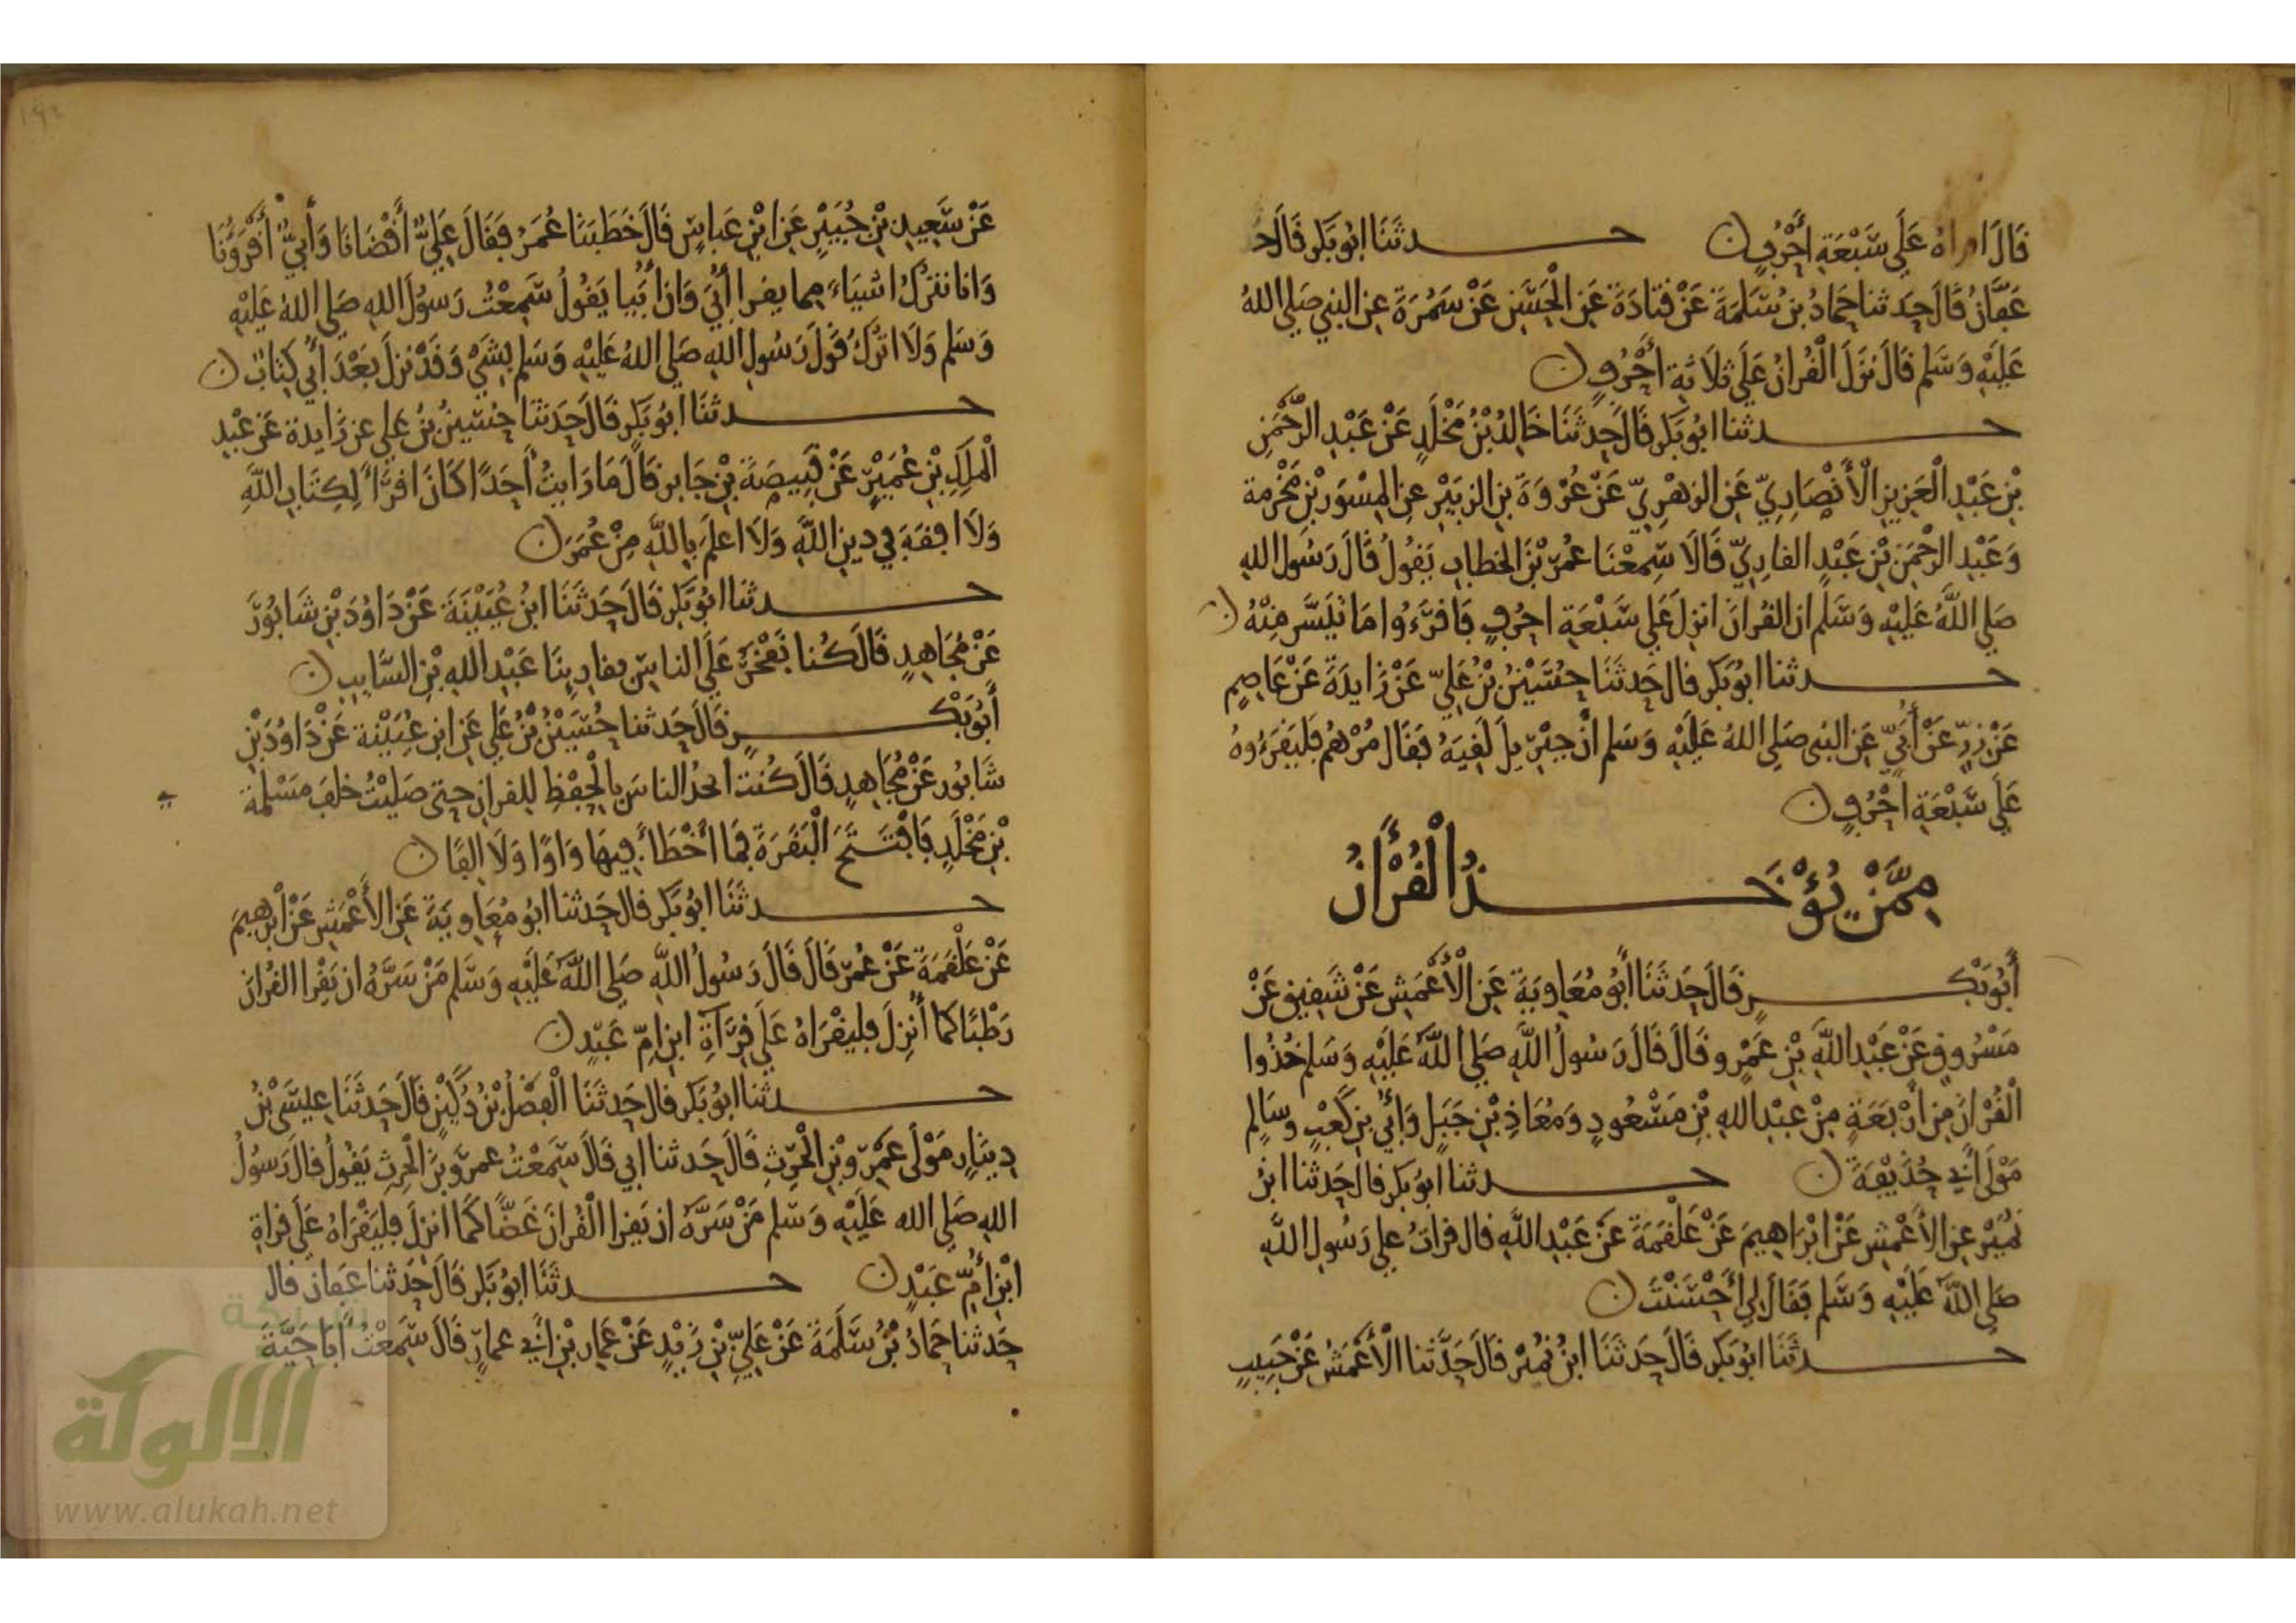 قَالَ اقراهُ عَلَى سَبْعَةِ أَحْرُفٍ ن حـــدثَنَا ابُو بَكر قَالَ حَـ
عَفَّانُ قَالَ حَدثنا حَمادُ بنُ سَلَمَةَ عَنْ قتادَةَ عَنِ الْحَسَنِ عَنْ سَمُرَةَ عنِ النبي صَلى اللهُ
عَلَيْهِ وَسَلم قَالَ نَزَلَ الْقُرانُ عَلَى ثلَاثةِ أَحْرُفٍ ن
حـــدثنا ابُو بَكر قَالَ حَدثَنَا خَالِدُ بْنُ مَخْلَدٍ عَنْ عَبْدِ الرَّحْمَنِ
بْنِ عَبْدِ الْعَزِيزِ الْأَنْصَارِيِّ عَنِ الزهْرِيِّ عَنْ عُرْوَةَ بنِ الزبَيْرِ عنِ المِسْوَرِ بْنِ مَخْرَمة
وَعَبْدِ الرَّحْمَنِ بْنِ عَبْدٍ القارِيِّ قَالَا سَمِعْنَا عُمَرَ بْنَ الخطابِ يَقُولُ قَالَ رَسُول اللهِ
صَلى اللَّهُ عَلَيْهِ وَسَلَّم ان القُرانَ انزِلَ عَلى سَبْعَةِ احرُفٍ فَاقرَءُوا مَا تَيَسَّر مِنْهُ ن
حـــدثنا ابُو بَكر قال حَدثَنَا حُسَيْنُ بْنُ عَليّ عَنْ زَايدَةَ عَنْ عَاصِمٍ
عَنْ زِرٍّ عَنْ أُبَيٍّ عَنِ النبى صَلى اللهُ عَلَيْهِ وَسَلم انَّ جبْريلَ لَقِيَهُ فقَال مُرْهُم فَليَقرَءُوهُ
عَلَى سَبْعَةِ احْرُفٍ ن
مِمَّنْ يُؤْخَـــذُ الْقُرْأَنُ
أَبُو بَكْـــرٍ قَالَ حَدثَنَا أَبُو مُعَاوِيَةَ عَنِ الْأَعْمَشِ عَنْ شَقِيقٍ عَنْ
مَسْرُوقٍ عَنْ عَبْدِ اللَّهِ بْنِ عَمْرٍو قَالَ قَالَ رَسُولُ اللَّهِ صَلى اللَّهُ عَلَيْهِ وَسَلم خُذُوا
الْقُرْانَ مِن أَرْبَعَةٍ مِنْ عَبْدِ اللهِ بْنِ مَسْعُودٍ وَمُعَاذِ بْنِ جَبَلٍ وَأُبَيِّ بنِ كَعْبٍ وسَالِم
مَوْلَى أَبي حُذَيْفَةَ ن حـــدثنا ابُو بَكر قال حَدثنا ابنُ
نُمَيْر عنِ الأَعْمَشِ عَنْ ابْرَاهِيمَ عَنْ عَلْقَمَةَ عَنْ عَبْدِ اللَّهِ قال قراتُ على رَسُولِ اللَّهِ
صَلى اللَّهُ عَلَيْهِ وَسَّلم فقَالَ لِي أَحْسَنْتَ ن
حـــدثَنَا ابُو بَكر قَالَ حَدثَنَا ابنُ نُمَيْر قَالَ حَدَّثنا الْأَعْمَشُ عَنْ حَبِيبٍ
عَنْ سَعِيدِ بْنِ جُبَيْرٍ عَنِ ابْنِ عَباسٍ قَالَ خَطَبَنَا عُمَرُ فقَالَ عَلِيٌّ أَقْضَانَا وَأُبيٌّ أَقْرَؤُنَا
وَانا نتركُ اشيَاءَ مِما يقرا أُبيّ وَانَّ أُبَيا يَقُولُ سَمِعْتُ رَسُولَ اللهِ صَلى اللهُ عَلَيْهِ
وَسَلم وَلَا اترُكُ قَولَ رَسُولِ اللهِ صَلى اللهُ عَلَيْهِ وَسَلم لِشَيْ وَقَدْ نزلَ بَعْدَ أُبي كِتَابٌ ن
حـــدثنَا ابُو بَكر قَالَ حَدثنَا حُسَينُ بْنُ عَلى عن زَايدة عَن عَبْدِ
الْمَلِكِ بْنِ عُمَيْرٍ عَنْ قَبِيصَةَ بْنِ جَابر قَالَ مَا رَايتُ أَحَدًا كَانَ اقرَأَ لِكِتَابِ اللَّهِ
وَلَا افقَهَ في دينِ اللَّهِ وَلَا اعلَمَ بِاللَّهِ مِنْ عُمَرَ ن
حـــدثنَا ابُو بَكر قَالَ حَدثَنَا ابنُ عُيَيْنَةَ عَنْ دَاوُدَ بْنِ شَابُورَ
عَنْ مُجَاهِدٍ قَالَ كُنا نَفْخَرُ عَلَى الناسِ بقارِينَا عَبْدِ اللهِ بْنِ السَّايبِ ن
أَبُو بَكْـــرٍ قَالَ حَدثنا حُسَيْنُ بْنُ عَلي عَنِ ابنِ عُيَيْنة عَنْ دَاوُدَ بْنِ
شَابُور عَنْ مُجَاهِدٍ قَالَ كُنتُ احدُ الناسَ بِالْحِفْظِ للِقرانِ حتى صَلَيْتُ خلفَ مَسْلمَة
بْنِ مَخْلَدٍ فَافْتَتَحَ الْبَقَرَةَ فمَا أَخْطَأَ فِيهَا وَاوًا وَلَا الِفًا ن
حـــدثَنَا ابُو بَكر قال حَدثنا ابُو مُعَاويَةَ عَنِ الأَعْمَشِ عَنْ ابْرهيمَ
عَنْ عَلْقَمَةَ عَنْ عُمَرَ قَالَ قَالَ رَسُولُ اللَّهِ صَلى اللَّهُ عَلَيْهِ وَسَّلم مَنْ سَرَّهُ ان يَقْرا القُرانَ
رَطْبًا كَمَا أُنْزِلَ فليَقْرَاهُ عَلَى قرَآةِ ابنِ امِّ عَبْدٍ ن
حـــدثنا ابُو بَكر قال حَدثَنَا الْفضْلُ بْنُ دُكَيْنٍ قَالَ حَدثَنَا عِيسَى بْنُ
دِينَارٍ مَوْلَى عَمْرِو بْنِ الْحَرِثِ قَالَ حَدثنا ابي قَالَ سَمِعْتُ عمرَو بنَ الْحَرِثِ يَقُولُ قال رَسُولُ
اللهِ صَلى الله عَلَيْهِ وَسَّلم مَنْ سَرَّهُ ان يَقرا الْقُرانَ غَضًّا كَمَا انزِلَ فليَقْرَاهُ عَلَى قراةِ
ابْنِ أُمِّ عَبْدٍ ن حـــدثَنَا ابُو بَكر قَالَ حَدثنا عَفان قال
حَدثنا حَمادُ بْنُ سَلَمَةَ عَنْ عَلِيِّ بْنِ زَيْدٍ عَنْ عَمارِ بْنِ أَبي عمارٍ قَالَ سَمِعْتُ أَبَا حَيَّةَ
شبكة
الألوكة
www.alukah.net